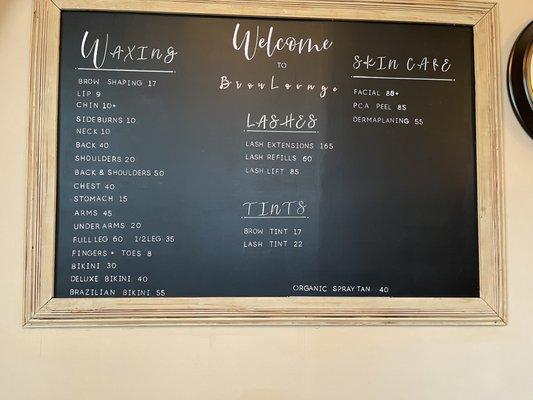 Waxing
BROW SHAPING 17
LIP 9
CHIN 10+
SIDEBURNS 10
NECK 10
BACK 40
SHOULDERS 20
BACK & SHOULDERS 50
CHEST 40
STOMACH 15
ARMS 45
UNDERARMS 20
FULL LEG 60 1/2 LEG 35
FINGERS + TOES 8
BIKINI 30
DELUXE BIKINI 40
BRAZILIAN BIKINI 55
Welcome
TO
BrowLounge
LASHES
LASH EXTENSIONS 165
LASH REFILLS 60
LASH LIFT 85
TINTS
BROW TINT 17
LASH TINT 22
SKIN CARE
FACIAL 88+
PCA PEEL 85
DERMAPLANING 55
ORGANIC SPRAY TAN 40